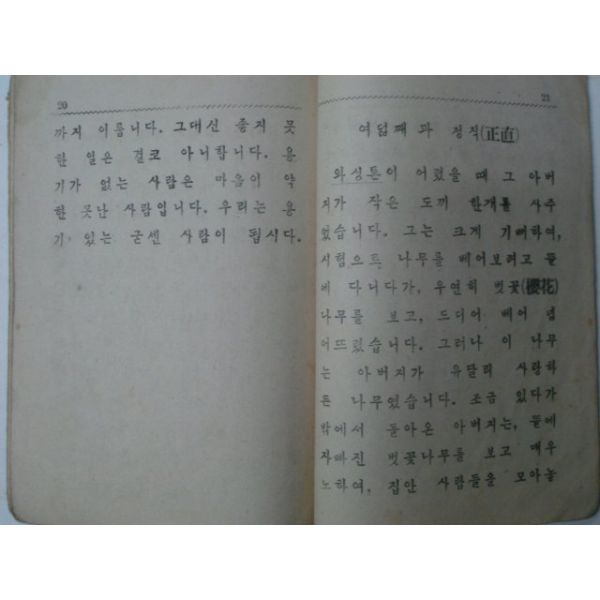 20
까지 이릅니다. 그대신 좋지 못
한 일은 결코 아니합니다. 용
기가 없는 사람은 마음이 약
한 못난 사람입니다. 우리는 용
기 있는 굳센 사람이 됩시다.
21
여덟째 과 정직(正直)
와성톤이 어렸을 때 그 아버
지가 작은 도끼 한개를 사주
었습니다. 그는 크게 기뻐하여,
시험으로 나무를 베어보려고 들
에 다니다가, 우연히 벗꽃(櫻花)
나무를 보고, 드디어 베어 넘
어뜨렸습니다. 그러나 이 나무
는 아버지가 유달리 사랑하
든 나무였습니다. 조금 있다가
밖에서 돌아온 아버지는, 들에
자빠진 벗꽃나무를 보고 매우
노하여, 집안 사람들을 모아놓